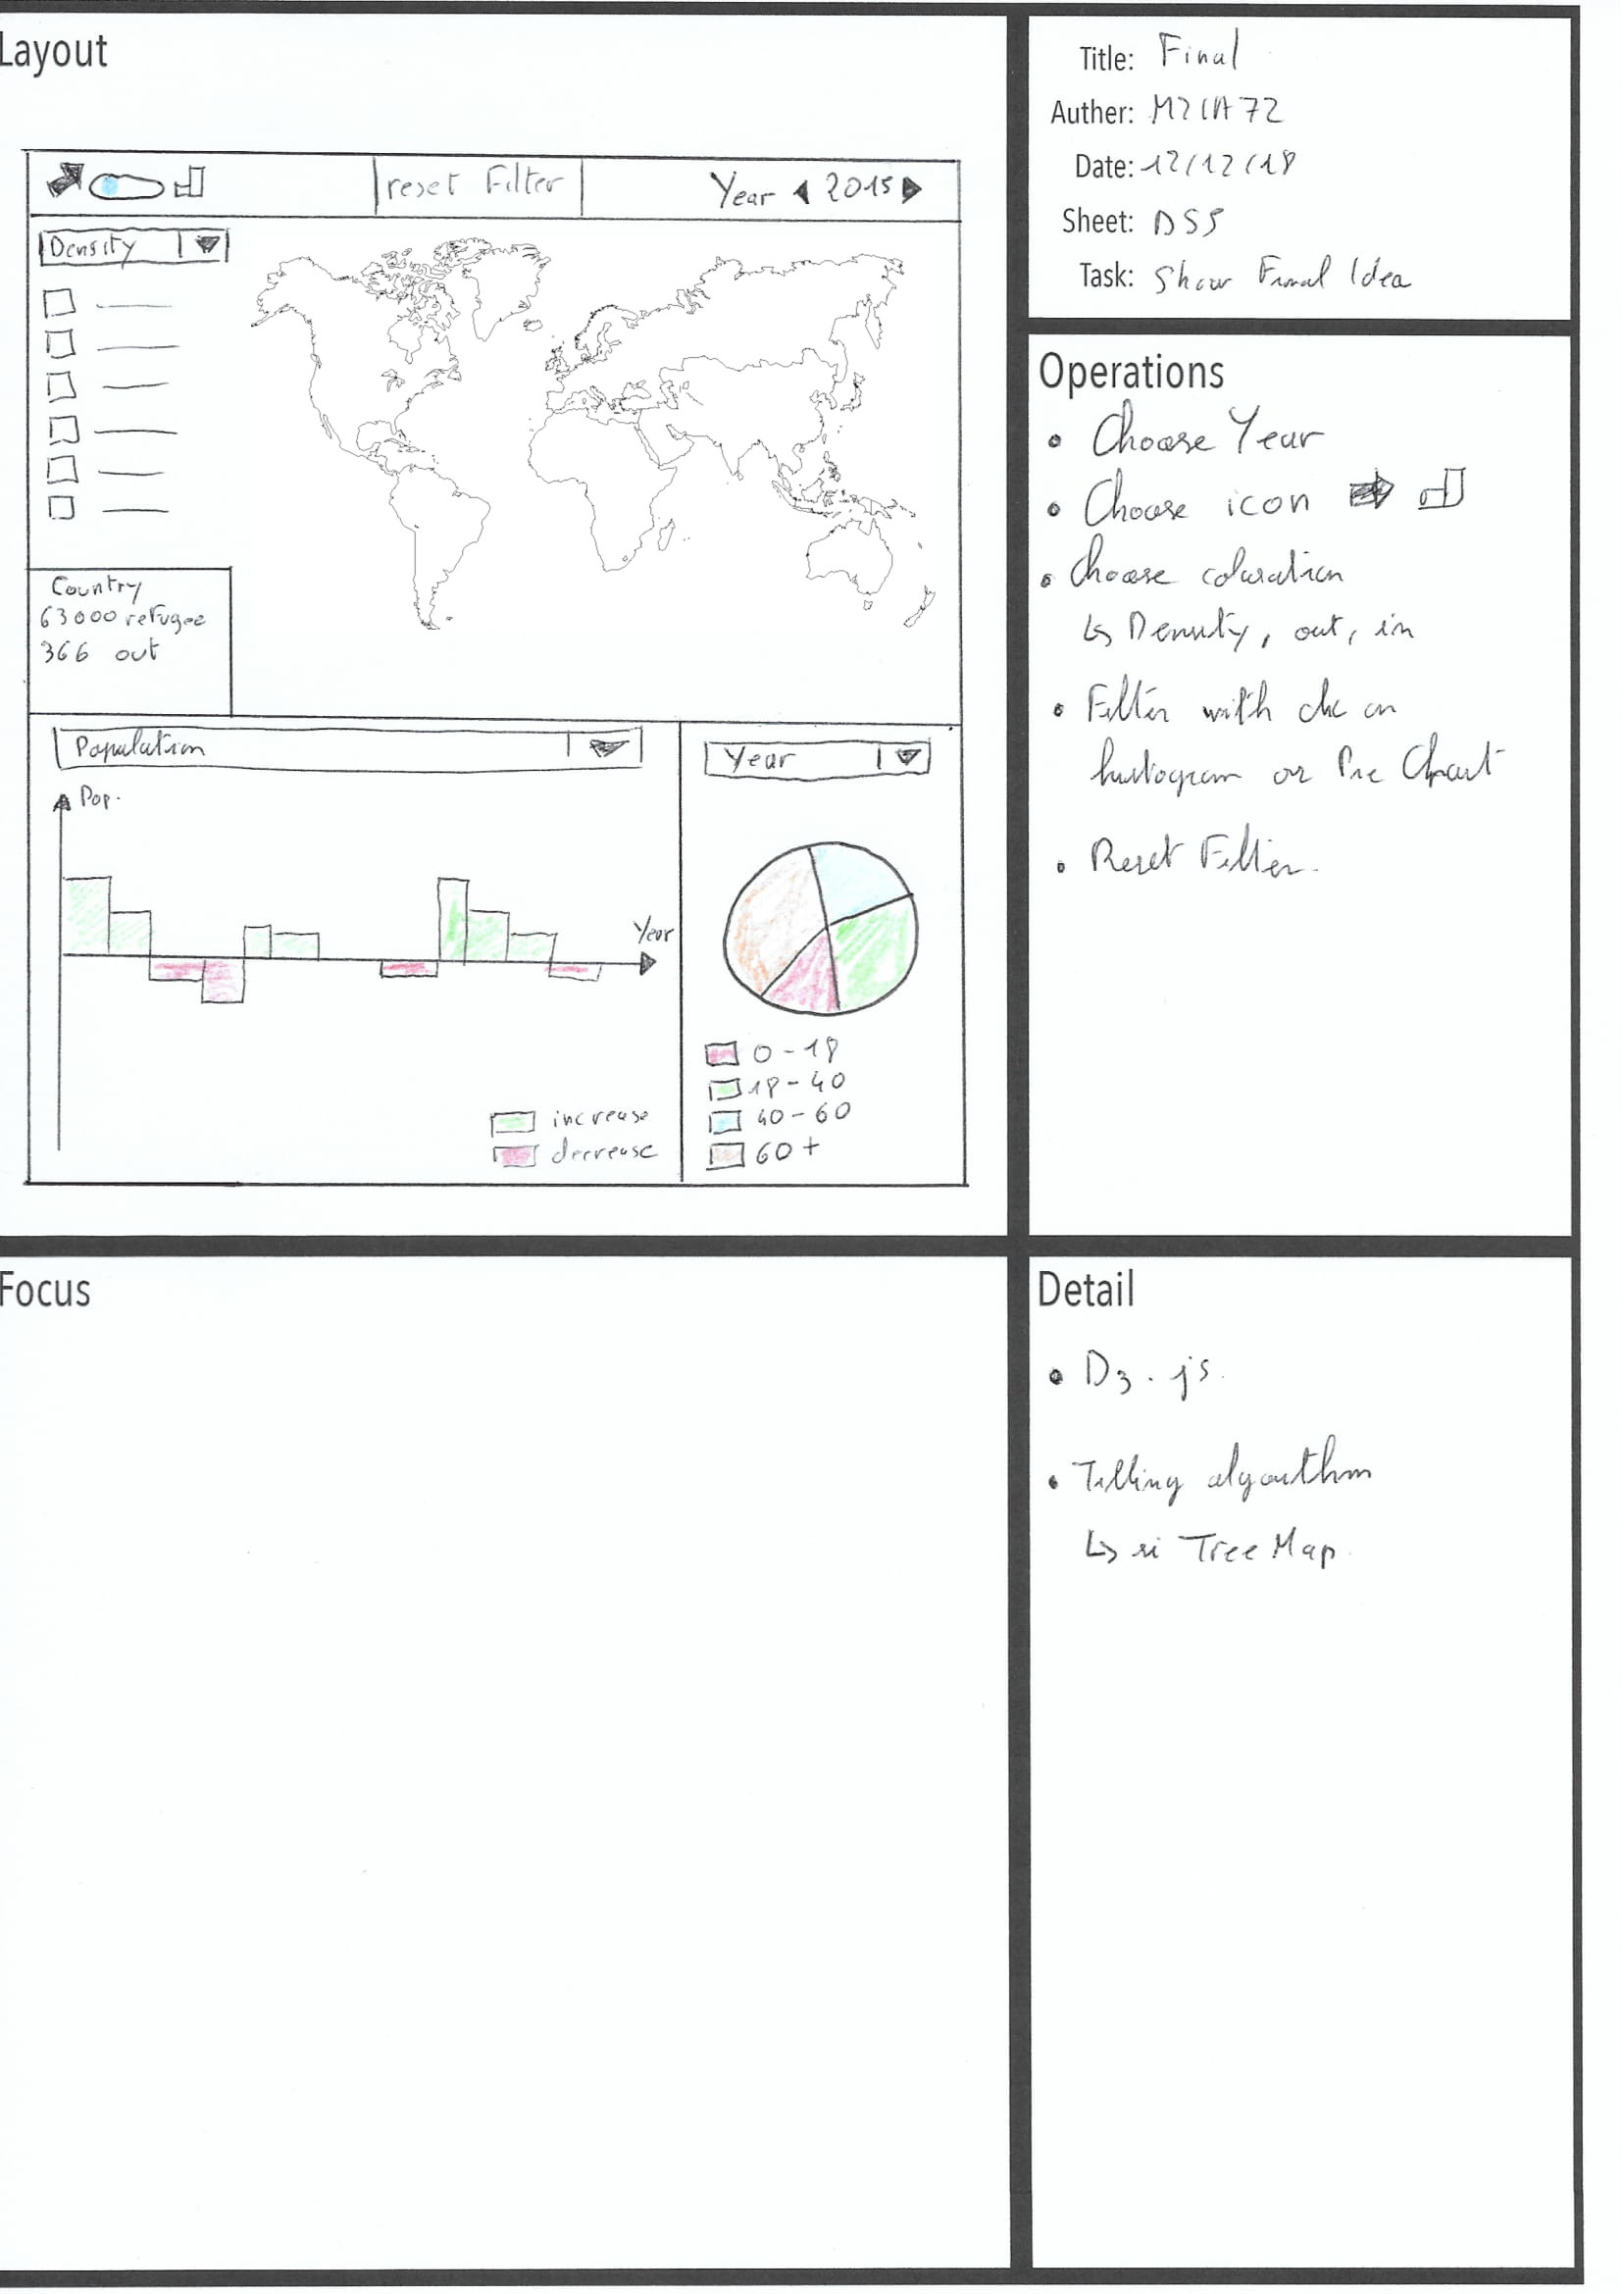 Layout
reset Filter
Year 2015
Density
Country
63000 refugee
366 out
Population
Pop.
Year
increase
decrease
Year
0-18
18-40
40-60
60+
Title: Final
Auther:
Date: 12/12/18
Sheet: DS5
Task: Show Final Idea
Operations
• Choose Year
• Choose icon
• Choose coloration
↳ Density, out, in
• Filter with clic on
histogram or Pie Chart
• Reset Filter.
Focus
Detail
• D3.js.
• Tilling algorithm
↳ si TreeMap.